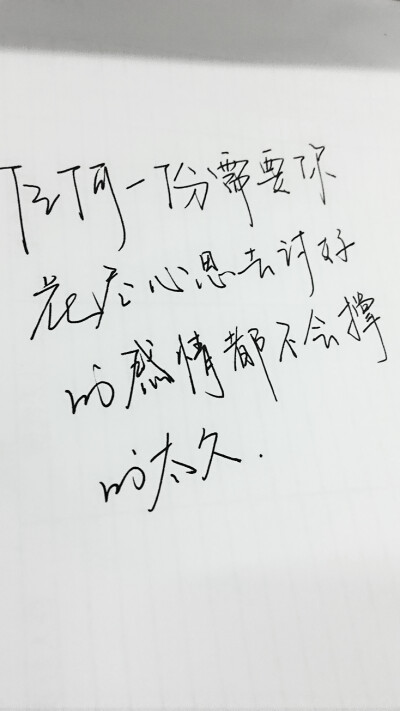 任何一份需要你
花尽心思去讨好
的感情都不会撑
的太久.